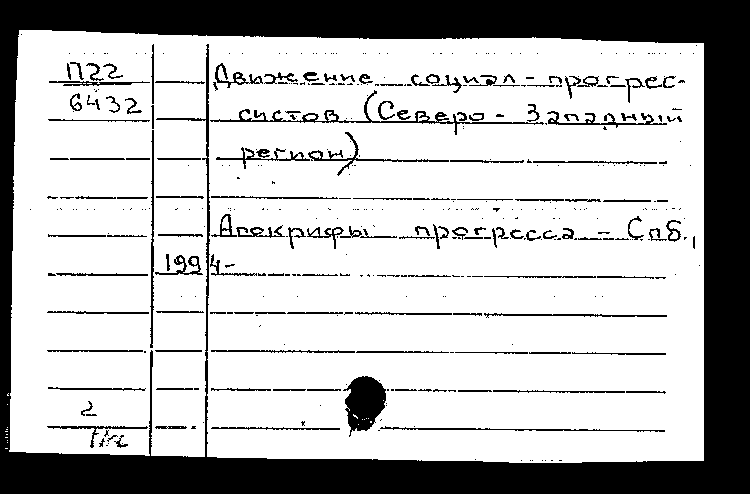 П22 Движение социал-прогрес-
6432 систов (Северо-Западный
регион)
Апокрифы прогресса - Спб.,
1994-
2